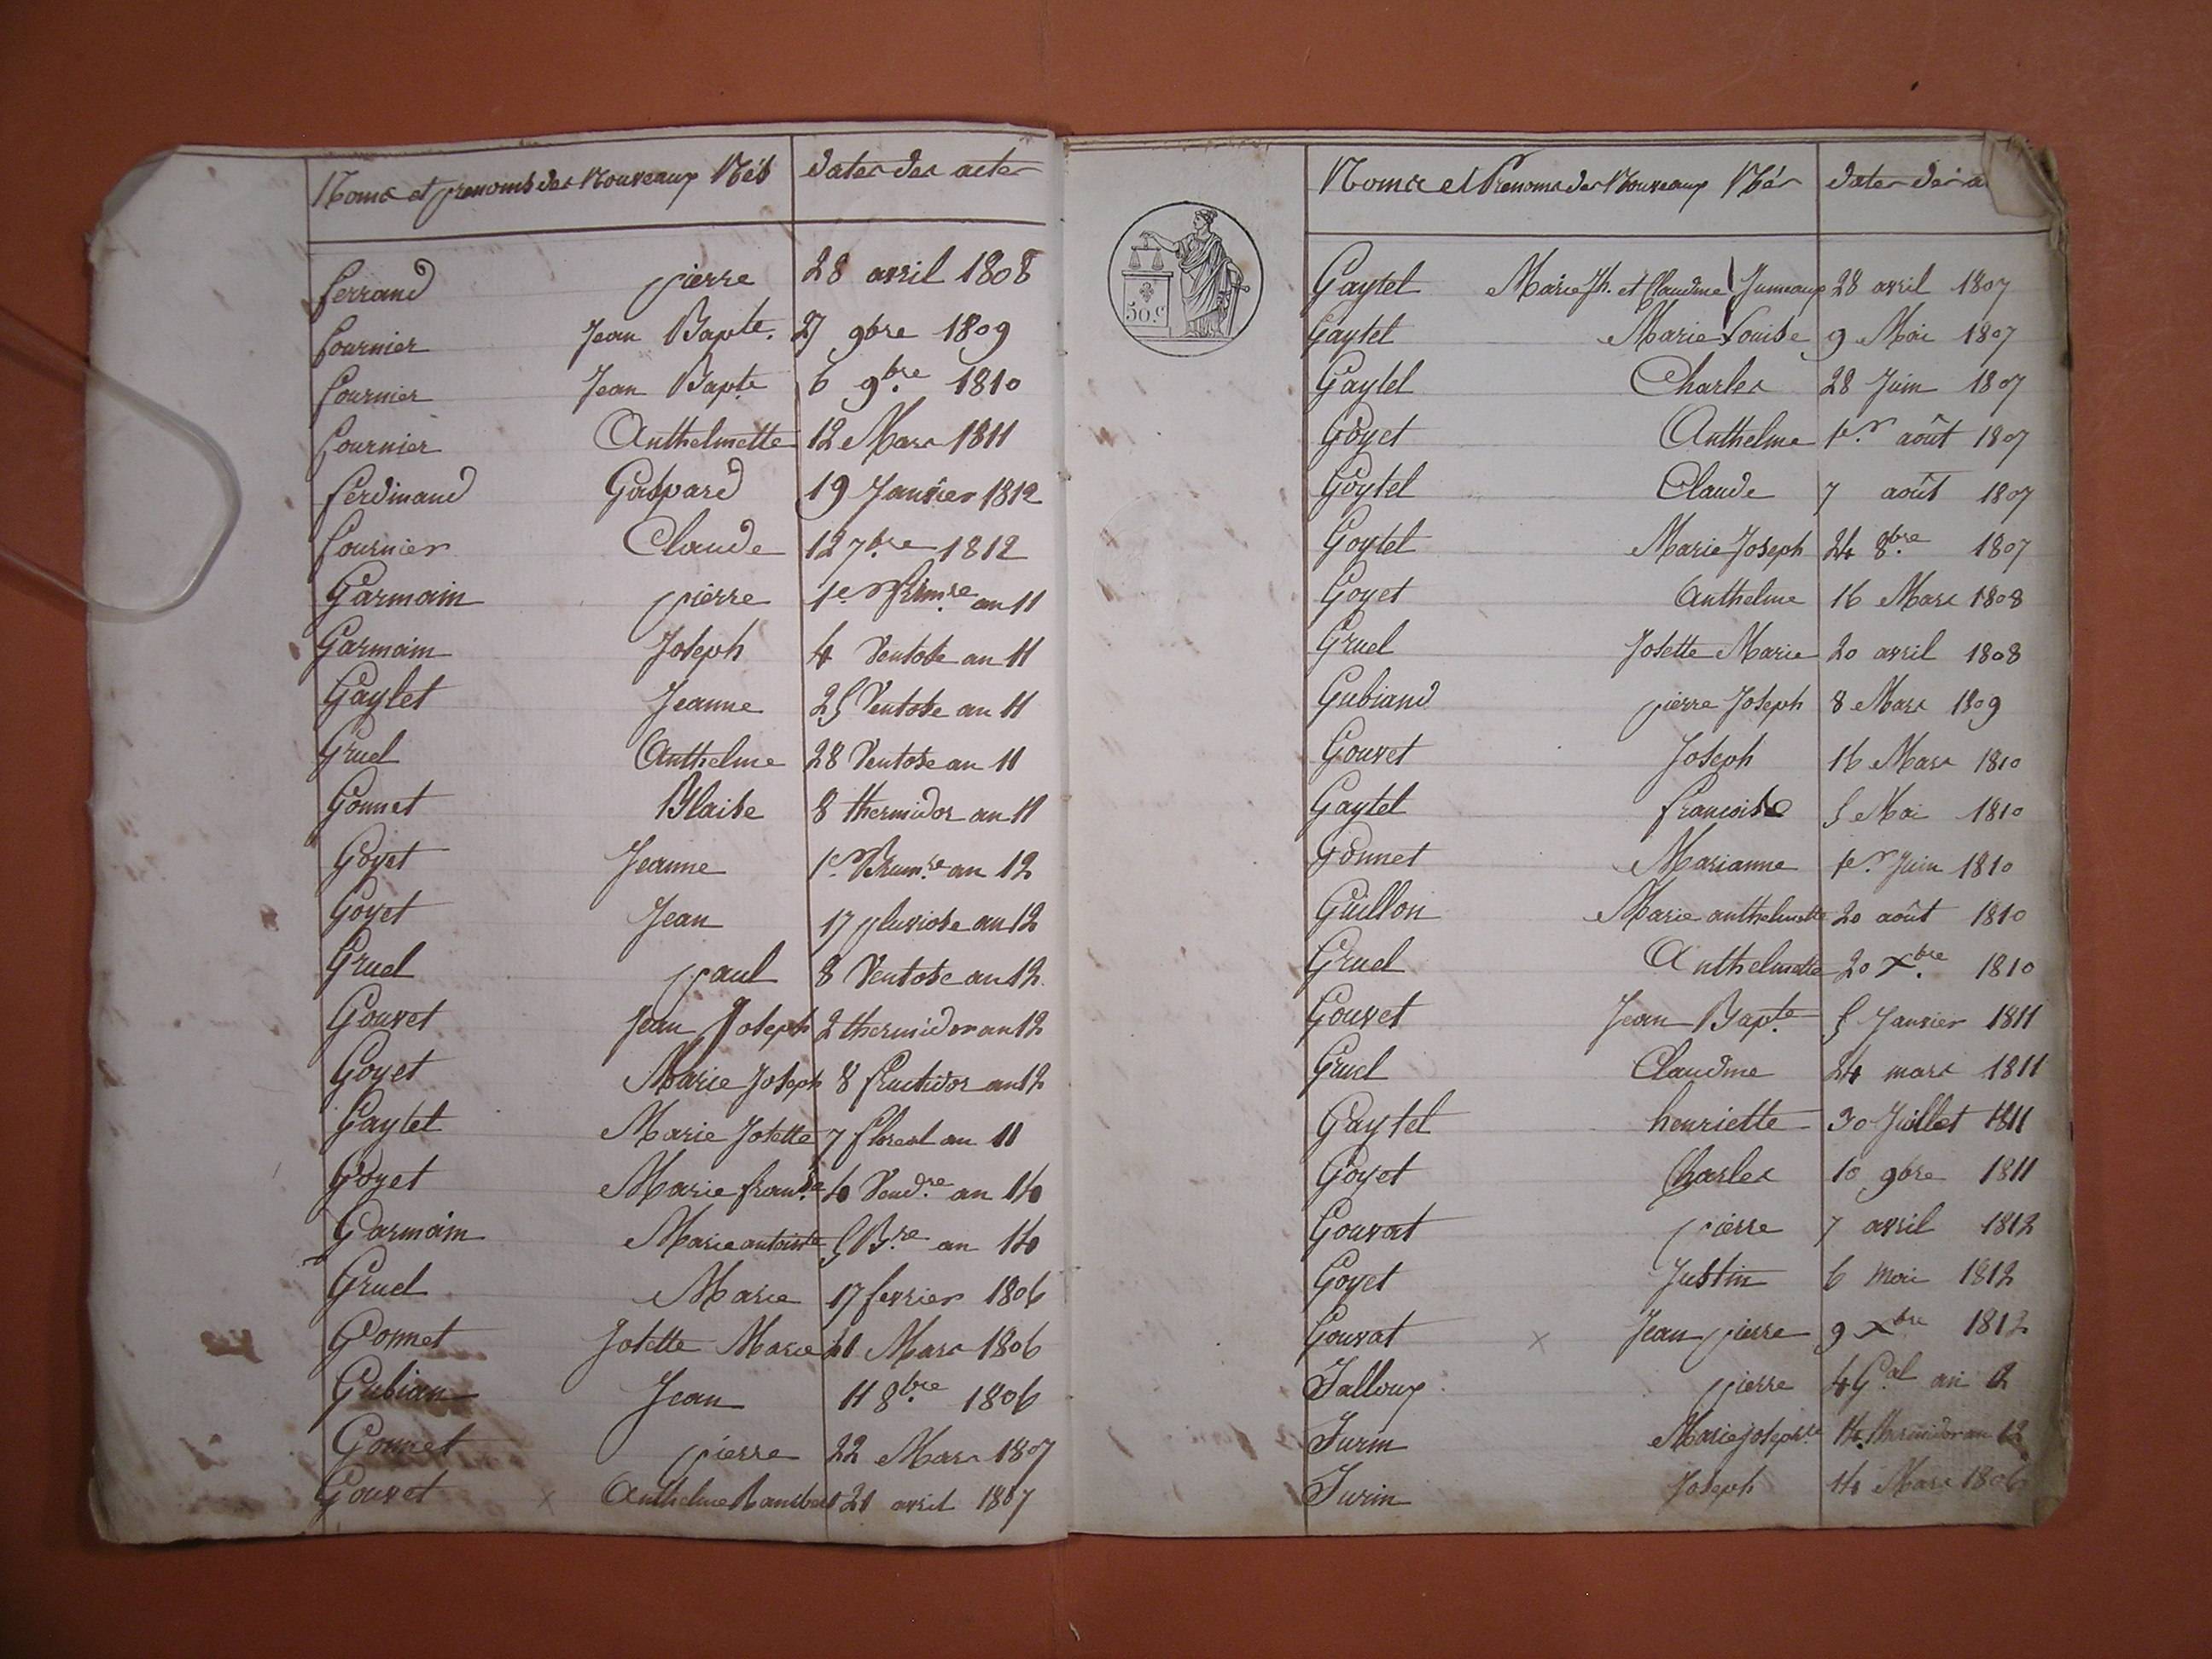 Noms et prenoms des Nouveaux Nés dates des actes
ferrand pierre 28 avril 1808
fournier Jean Bapte. 27 9bre 1809
fournier Jean Bapte 6 9bre 1810
fournier Anthelmette 12 Mars 1811
ferdinand Gaspard 19 Janvier 1812
fournier Claude 12 7bre 1812
Garmain pierre 1er frimre an 11
Garmain Joseph 4 Ventose an 11
Gaytet Jeanne 25 Ventose an 11
Gruel Anthelme 28 Ventose an 11
Gonnet Blaise 8 thermidor an 11
Goyet Jeanne 1er Brumre an 12
Goyet Jean 17 pluviose an 12
Gruel paul 8 Ventose an 12
Gouvet Jean Joseph 2 thermidor an 12
Goyet Marie Joseph 8 fructidor an 12
Gaytet Marie Josette 7 floreal an 11
Goyet Marie franse Vendre an 14
Garmain Marie antointe 5 Bre an 14
Gruel Marie 17 fevrier 1806
Gonnet Josette Marie Mars 1806
Gubian Jean 11 8bre 1806
Gonnet pierre 22 Mars 1807
Gouvet x Anthelme Rambert 21 avril 1807
Noms et Prenoms des Nouveaux Nés dates des a
50 c
Gaytet Marie Jh. et Claudine Jumeaux 28 avril 1807
Gaytet Marie Louise 9 Mai 1807
Gaytet Charles 28 Juin 1807
Goyet Anthelme 1er août 1807
Goytet Claude 7 août 1807
Goytet Marie Joseph 24 8bre 1807
Goyet Anthelme 16 Mars 1808
Gruel Josette Marie 20 avril 1808
Gubiand pierre Joseph 8 Mars 1809
Gouvet Joseph 16 Mars 1810
Gaytet francoise 5 Mai 1810
Gonnet Marianne 1er Juin 1810
Guillon Marie anthelmette 20 août 1810
Gruel Anthelmette 20 Xbre 1810
Gouvet Jean Bapte 5 Janvier 1811
Gruel Claudine 24 mars 1811
Gaytet henriette 30 Juillet 1811
Goyet Charles 10 9bre 1811
Gouvat pierre 7 avril 1812
Goyet Justin 6 mai 1812
Gouvat x Jean pierre 9 Xbre 1812
Jalloux pierre 4 Gal an 12
Jurin Marie josephte 14 thermidor an 12
Jurin Joseph 14 Mars 1806